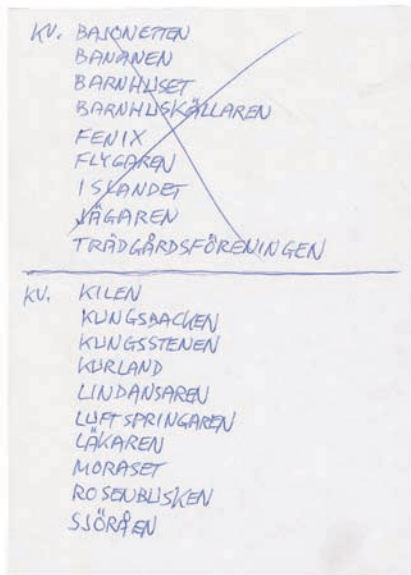 KV. BAJONETTEN
BANANEN
BARNHUSET
BARNHUSKÄLLAREN
FENIX
FLYGAREN
ISLANDET
JÄGAREN
TRÄDGÅRDSFÖRENINGEN
KV. KILEN
KUNGSBACKEN
KUNGSSTENEN
KURLAND
LINDANSAREN
LUFTSPRINGAREN
LÄKAREN
MORASET
ROSENBUSKEN
SJÖRÅEN